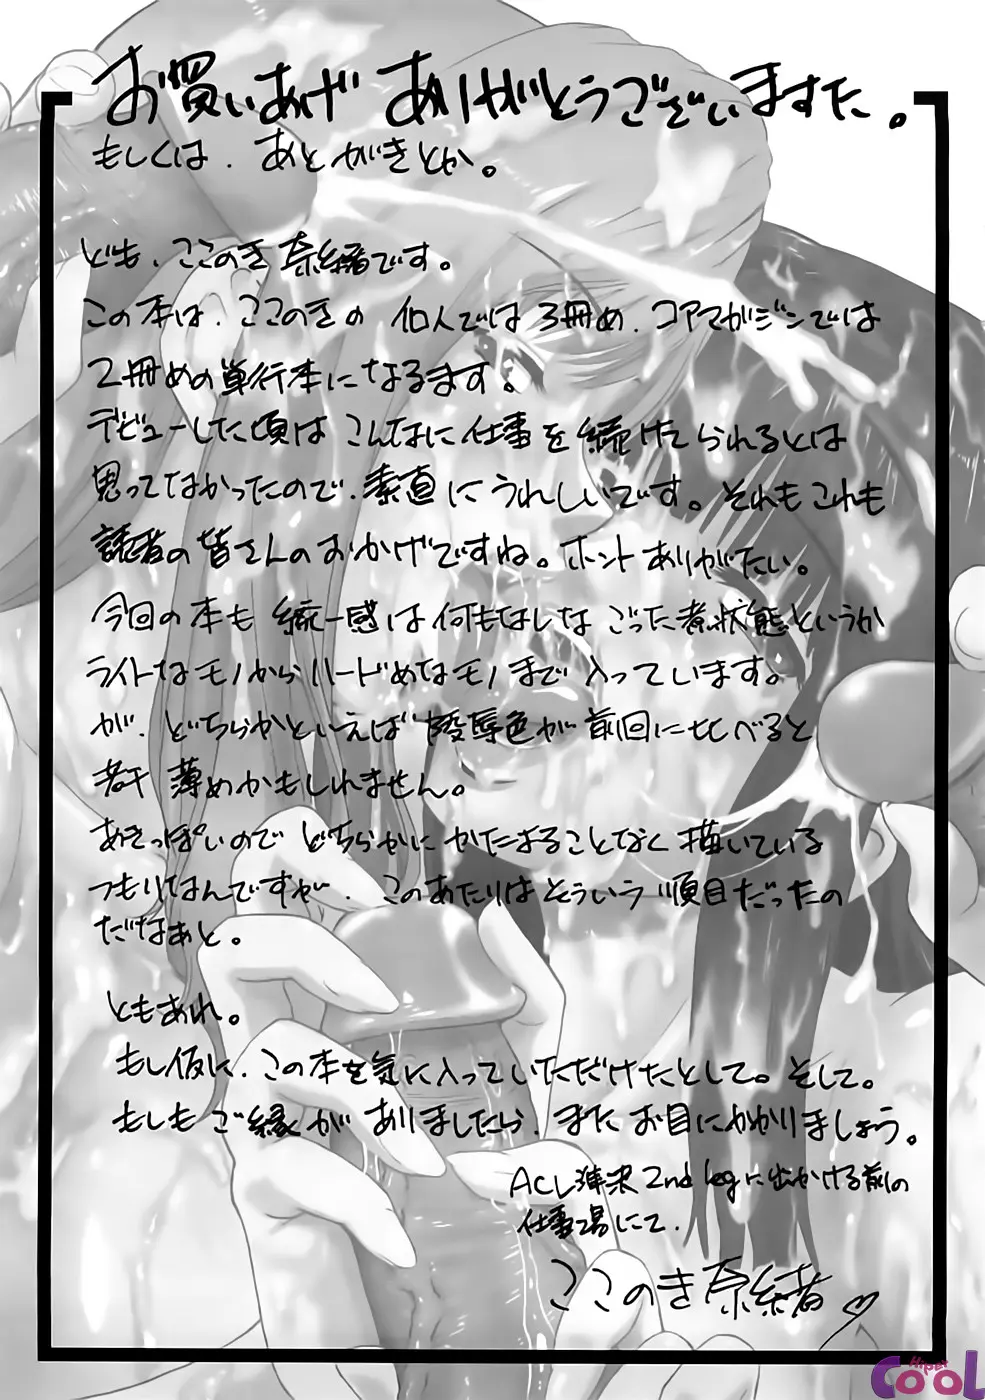 お買いあげ ありがとうございますた。
もしくは、あとがきとか。
ども、ここのき奈緒です。
この本は、ここのきの 個人では3冊め、コアマガジンでは
2冊めの単行本になるます。
デビューした頃は こんなに仕事を続けてられるとは
思ってなかったので、素直にうれしいです。それもこれも
読者の皆さんのおかげですね。ホントありがたい。
今回の本も 統一感は何もはしな ごった煮状態というか
ライトなモノからハードめなモノまで入っています。
が、どちらかといえば 陵辱色が前回に比べると
若干 薄めかもしれません。
あきっぽいので どちらかにかたまることなく描いている
つもりなんですが、このあたりはそういう順目だったの
だなぁと。
ともあれ。
もし仮に、この本を気に入っていただけたとして。そして。
もしもご縁がありましたら、またお目にかかりましょう。
ACL準決2nd legに出かける前の
仕事場にて、
ここのき奈緒♡
Hiper
CooL